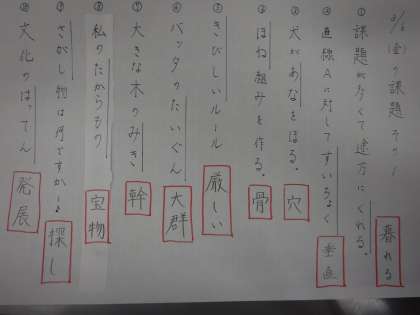 の課題 その1
① 課題が多くて途方にくれる。 暮れる
② 直線Aに対してすいちょく 垂直
③ 犬があなをほる。 穴
④ ほね組みを作る。 骨
⑤ きびしいルール 厳しい
⑥ バッタのたいぐん 大群
⑦ 大きな木のみき 幹
⑧ 私のたからもの 宝物
⑨ さがし物は何ですか〜♪ 探し
⑩ 文化のはってん 発展